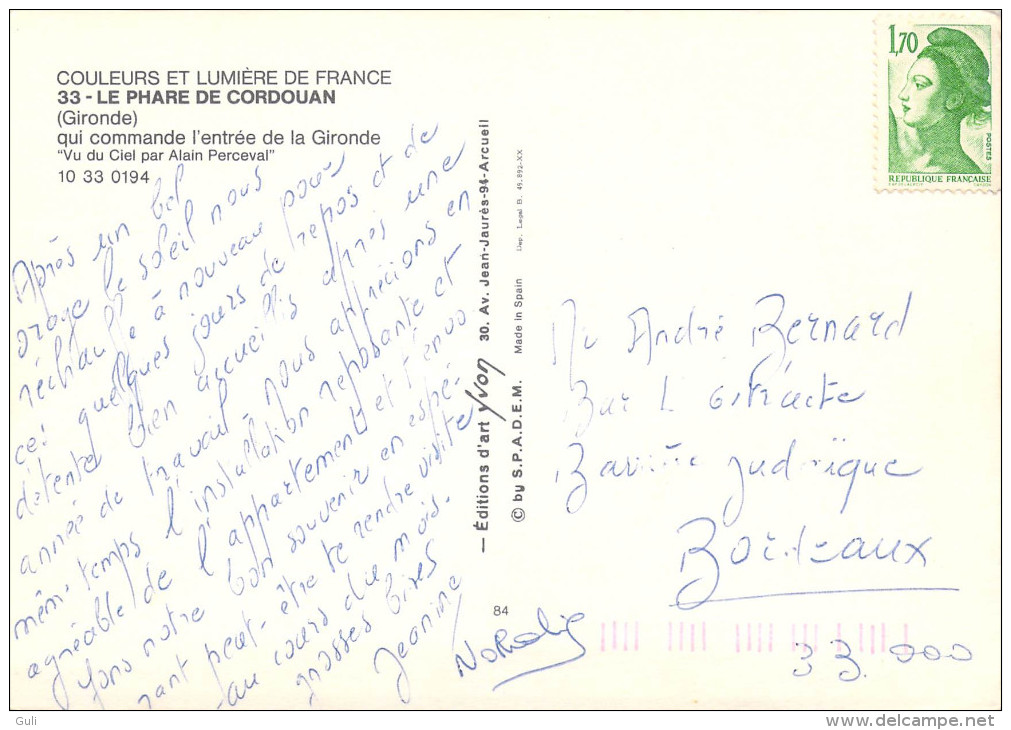 COULEURS ET LUMIÈRE DE FRANCE
33 - LE PHARE DE CORDOUAN
(Gironde)
qui commande l'entrée de la Gironde
"Vu du Ciel par Alain Perceval"
10 33 0194
Après un bel
orage le soleil nous
réchauffe à nouveau pour
ces quelques jours de repos et de
détente bien accueillis après une
année de travail nous apprécions en
même temps l'installation reposante et
agréable de l'appartement et t'envo
fons notre bon souvenir en espé-
rant peut-être te rendre visite
au cours du mois.
grosses bises
Jeanine
NORDIS
— Éditions d'art Yvon 30. Av. Jean-Jaurès-94-Arcueil
© by S.P.A.D.E.M. Made in Spain Dep. Legal B. 49.892-XX
84
1,70
POSTES
REPUBLIQUE FRANÇAISE
Mr André Bernard
Bar L
Barrière Judaïque
Bordeaux
33.000
Guli
delcampe.net